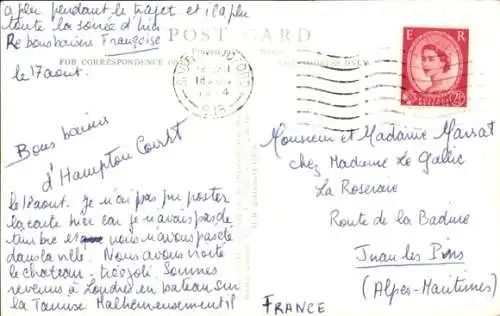 a plu pendant le trajet et il a plu
toute la soirée d'hier.
Re bons baisers Françoise
le 17 aout.
POST CARD
FOR CORRESPONDENCE
ONLY
E R
Bons baisers
d'Hampton Court
le 18 aout. Je n'ai pas pu poster
la carte hier car je n'avais pas de
timbre et nous n'avons pas été
dans la ville. Nous avons visité
le chateau. très joli. Sommes
revenus à Londres en bateau sur
la Tamise. Malheureusement il
Monsieur et Madame Marrat
chez Madame Le Gallic
La Roseraie
Route de la Badine
Juan les Pins
(Alpes-Maritimes)
FRANCE